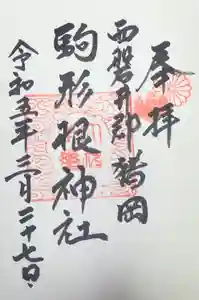 奉拝
西磐井郡鶯岡
駒形根神社
令和五年三月二十七日